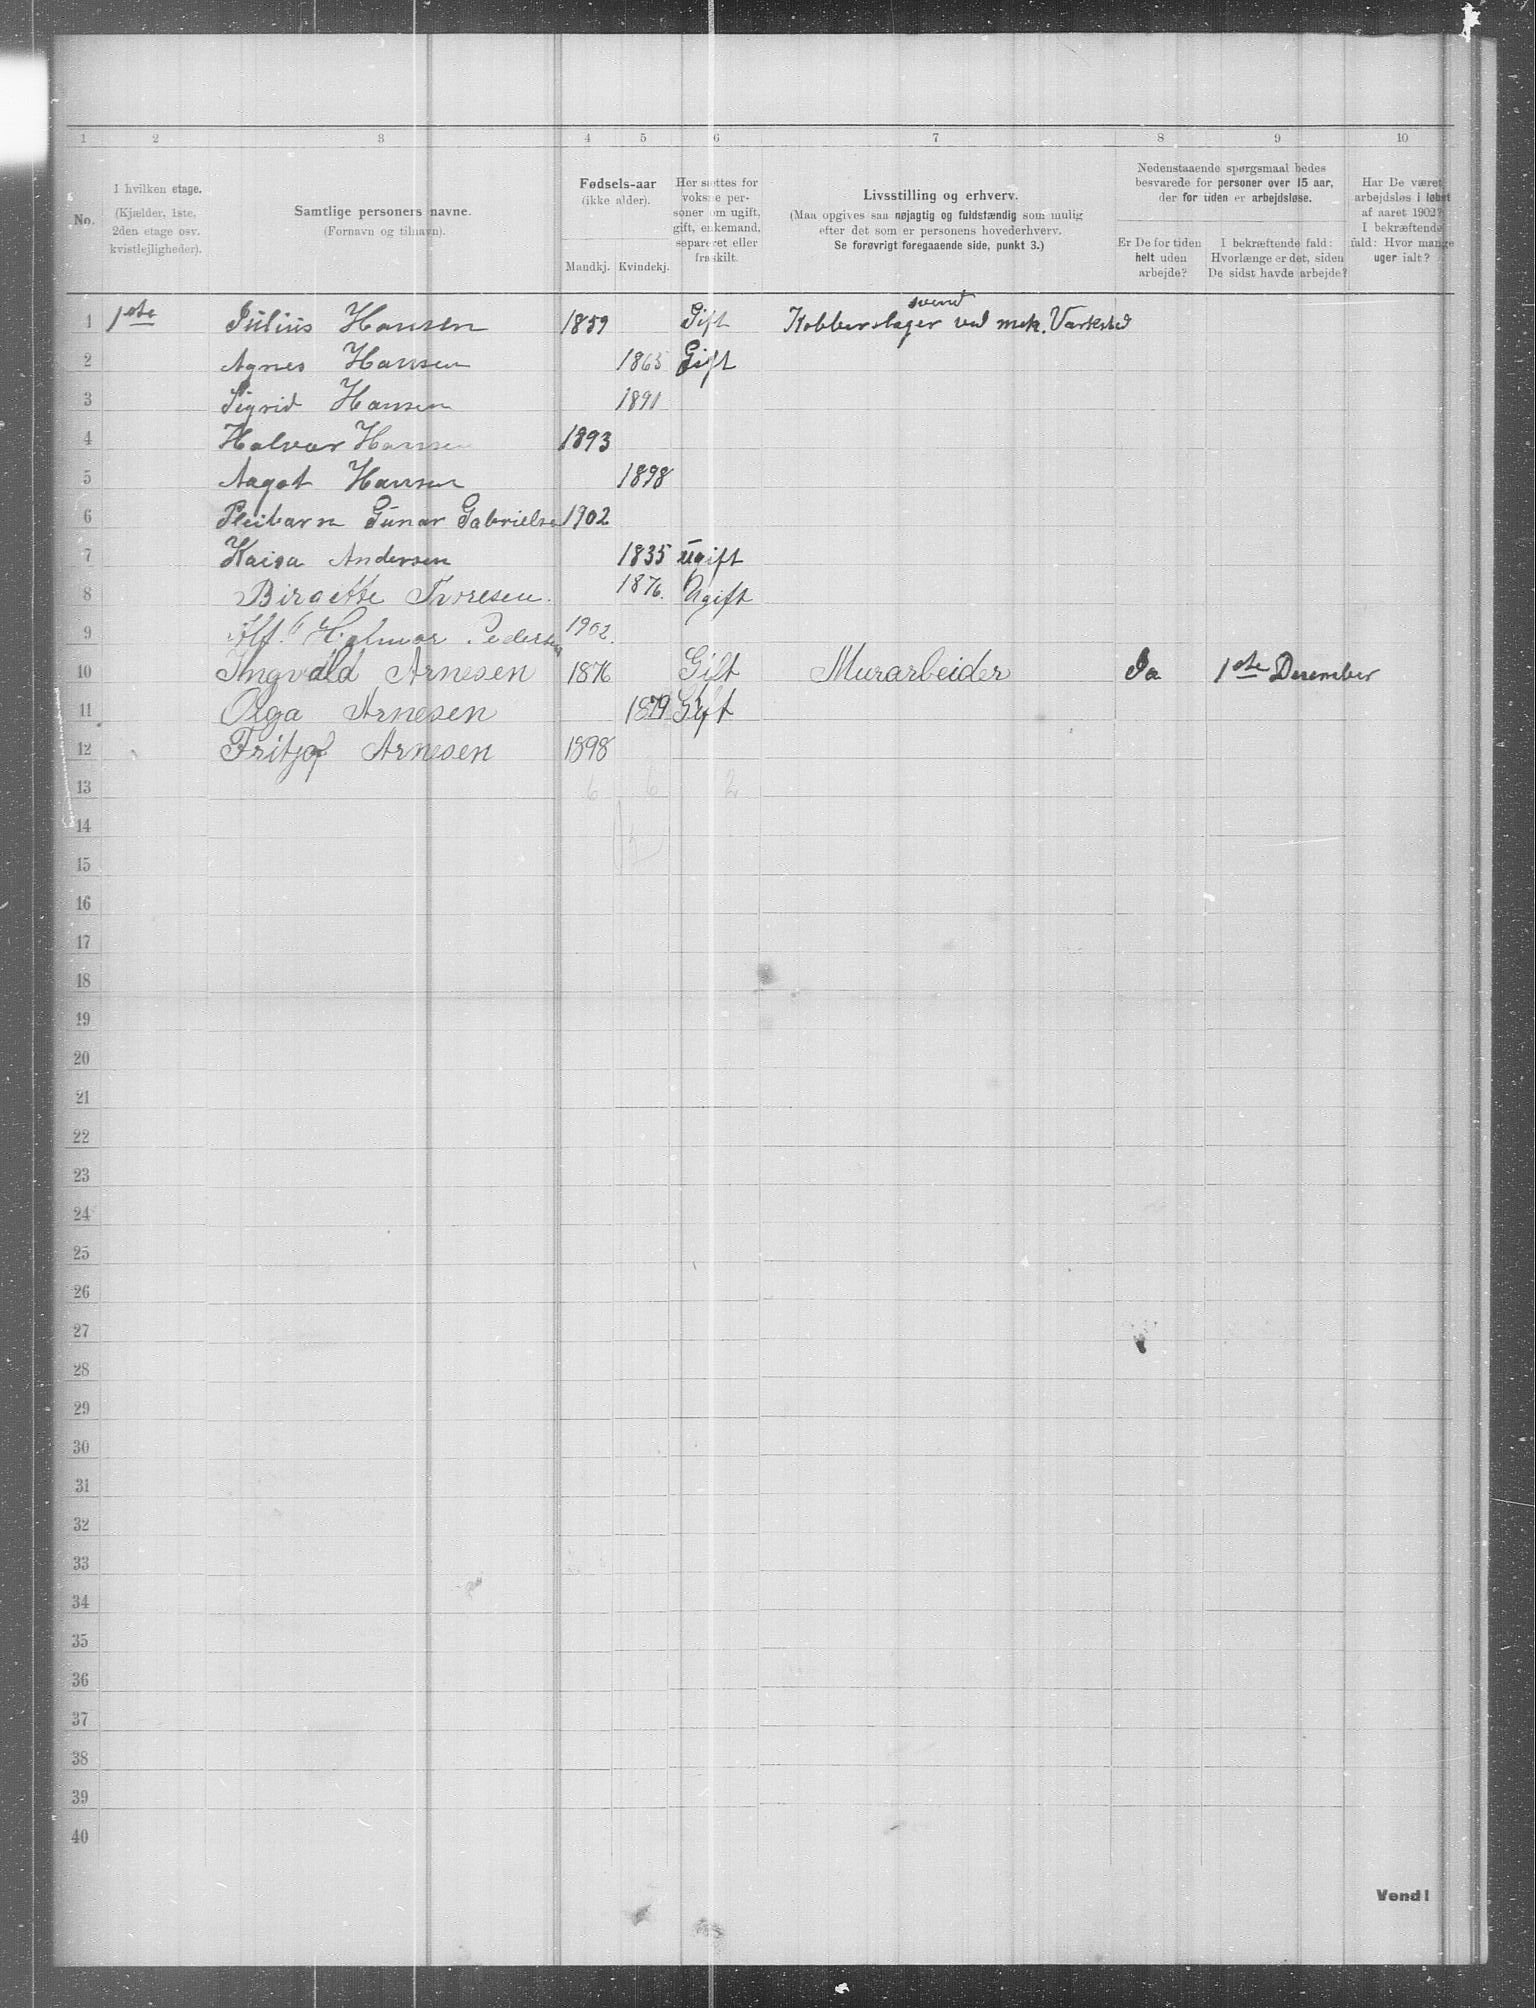 1 2 3 4 5 6 7 8 9 10
No.
I hvilken etage.
(Kjælder, 1ste,
2den etage osv.
kvistlejligheder).
Samtlige personers navne.
(Fornavn og tilnavn).
Fødsels-aar
(ikke alder).
Mandkj. Kvindekj.
Her sættes for
voksne per-
soner om ugift,
gift, enkemand,
separeret eller
fraskilt.
Livsstilling og erhverv.
(Maa opgives saa nøjagtig og fuldstændig som mulig
efter det som er personens hovederhverv.
Se forøvrigt foregaaende side, punkt 3.)
Nedenstaaende spørgsmaal bedes
besvarede for personer over 15 aar,
der for tiden er arbejdsløse.
Er De for tiden
helt uden
arbejde?
I bekræftende fald:
Hvorlænge er det, siden
De sidst havde arbejde?
Har De været
arbejdsløs i løbet
af aaret 1902?
I bekræftende
fald: Hvor mange
uger ialt?
1 1ste Julius Hansen 1859 Gift Kobberslager svend ved mek. Værksted
2 Agnes Hansen 1865 Gift
3 Sigrid Hansen 1891
4 Halvar Hansen 1893
5 Aagot Hansen 1898
6 Pleibarn Gunar Gabrielsen 1902
7 Kaisa Andersen 1835 ugift
8 Birgette Thoresen. 1876. Ugift
9 Alf. Hjalmar Pedersen 1902.
10 Ingvald Arnesen 1876 Gift Murarbeider Ja 1ste Desember
11 Olga Arnesen 1879 Gift
12 Fritjof Arnesen 1898
13 6 6 2
14
15
16
17
18
19
20
21
22
23
24
25
26
27
28
29
30
31
32
33
34
35
36
37
38
39
40
Vend!